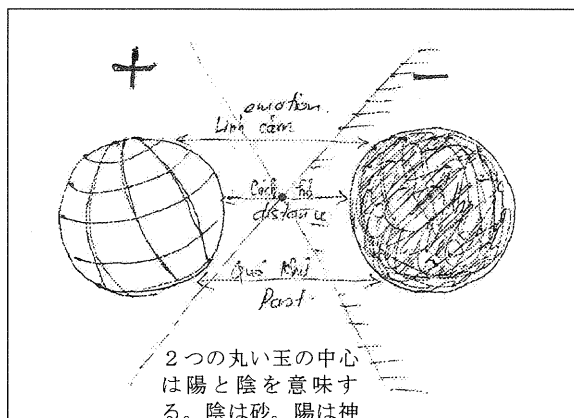 + −
emotion
Linh cảm
Cách
distance
Quá khứ
Past
2つの丸い玉の中心
は陽と陰を意味す
る。陰は砂。陽は神